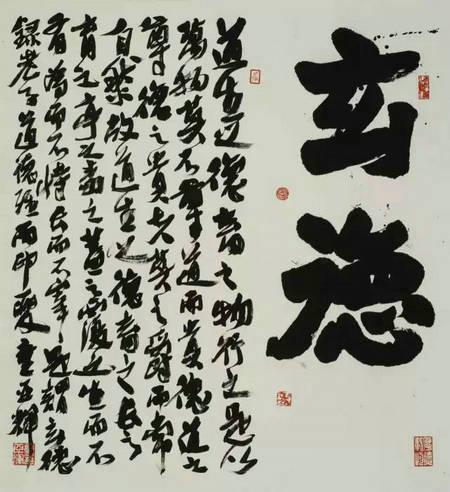 玄德
道生之德畜之物形之是以
萬物莫不尊道而貴德道之
尊德之貴夫莫之爵而常
自然故道生之德畜之長之
育之亭之毒之蓋之覆之生而不
有為而不恃長而不宰是謂玄德
錄老子道德經